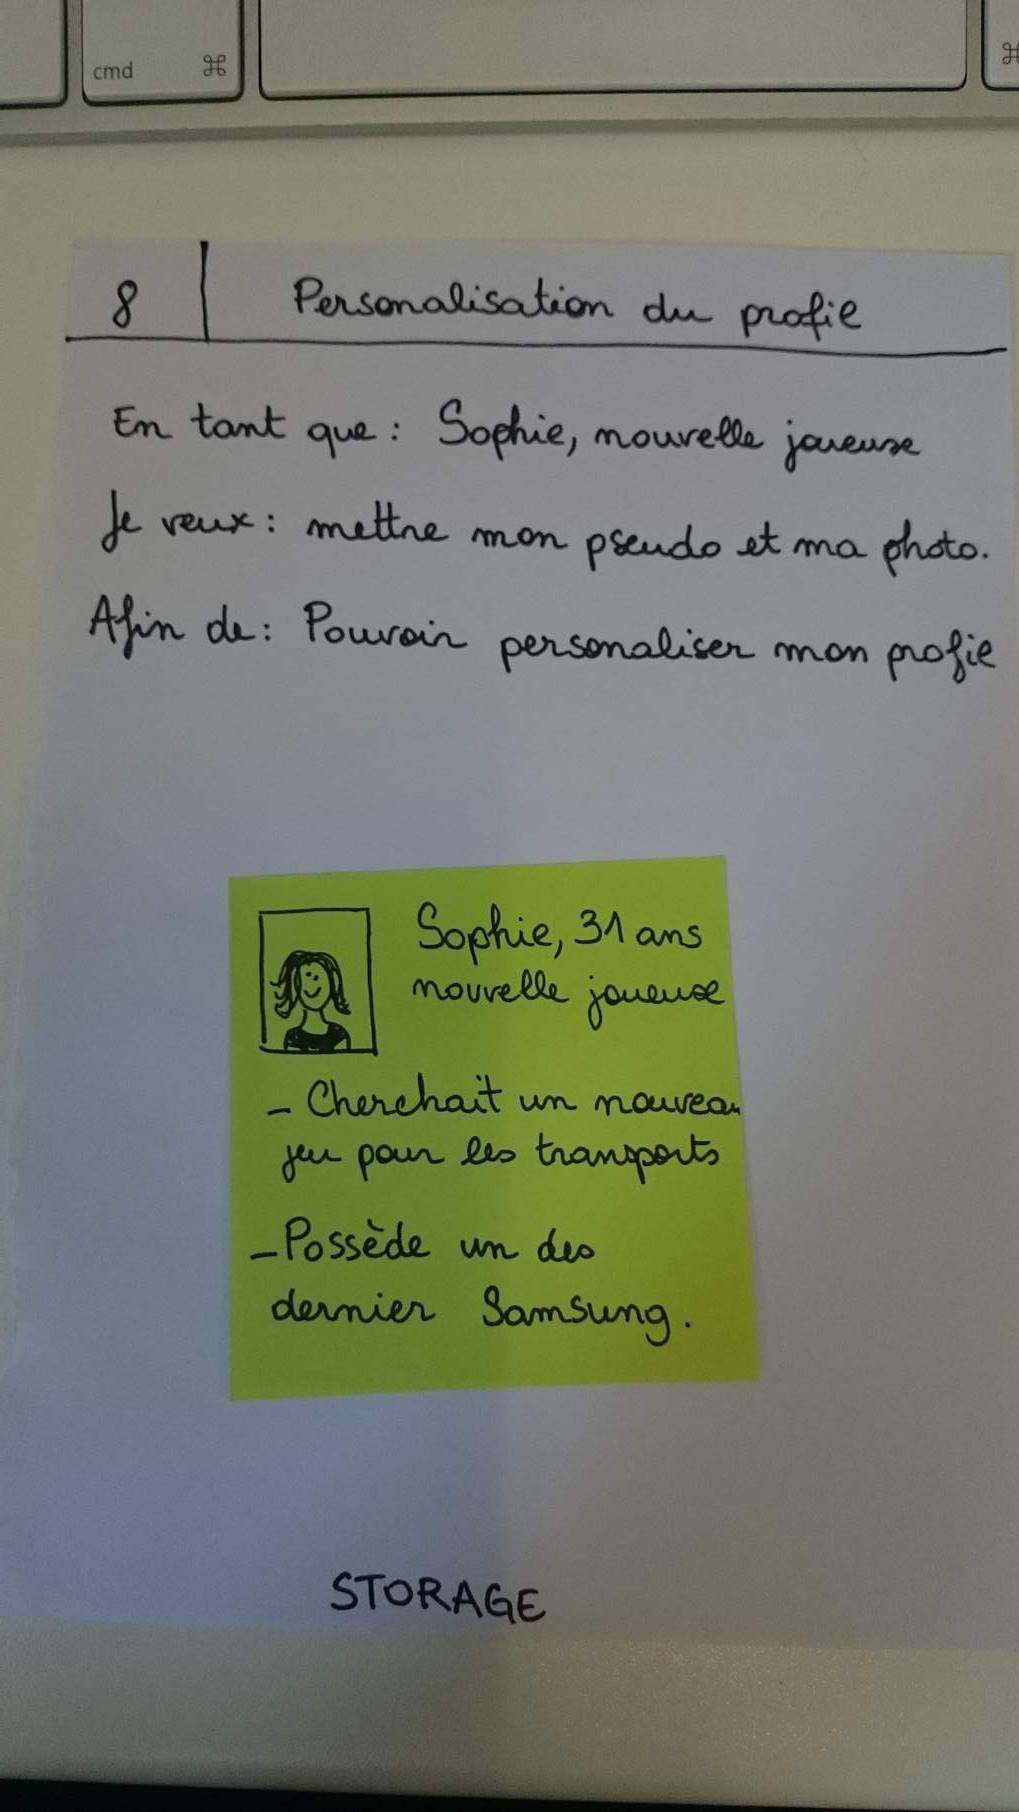 cmd ⌘ ⌘
8 Personalisation du profie
En tant que : Sophie, nouvelle joueuse
Je veux : mettre mon pseudo et ma photo.
Afin de : Pouvoir personaliser mon profie
Sophie, 31 ans
nouvelle joueuse
- Cherchait un nouveau
jeu pour les transports
- Possède un des
dernier Samsung.
STORAGE